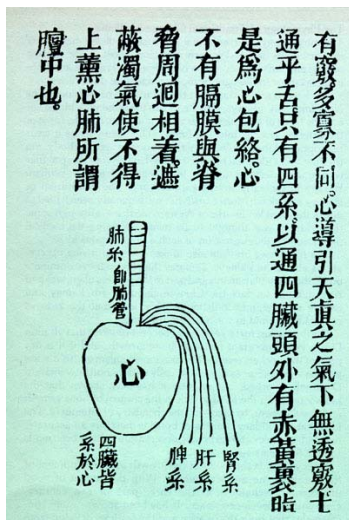 有竅多寡不同。心導引天真之氣下無透竅上
通乎舌只有四系。以通四臟頭外有赤黃裹脂
是為心包絡。心
不有膈膜與脊
脅周迴相着。遮
蔽濁氣使不得
上薰心肺所謂
膻中也。
肺系即肺管
心
腎系
肝系
脾系
四臟皆
系於心